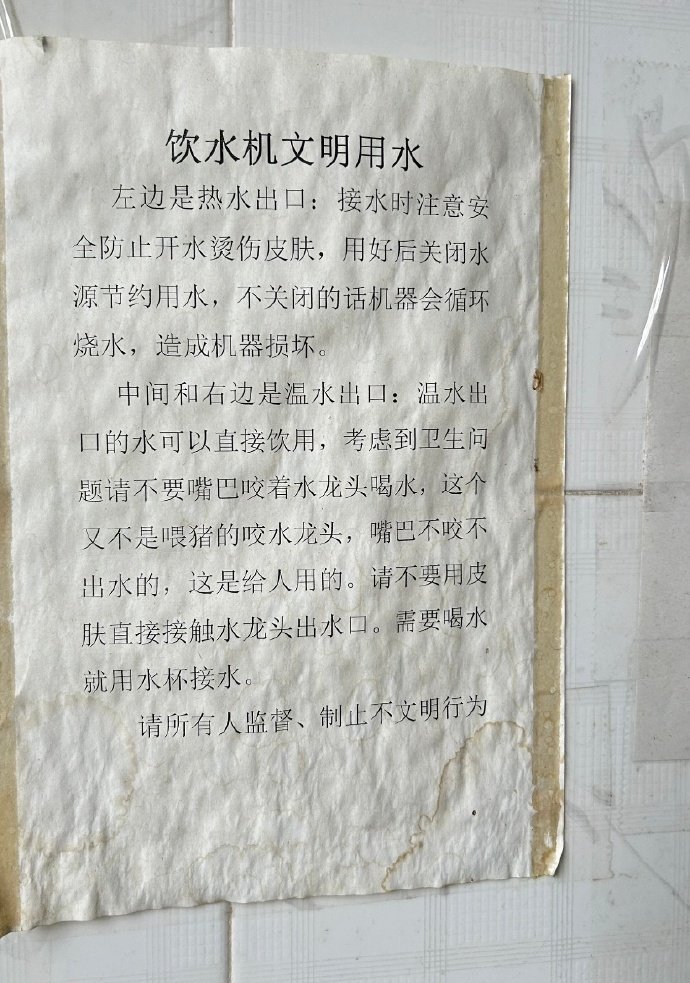 饮水机文明用水
左边是热水出口：接水时注意安
全防止开水烫伤皮肤，用好后关闭水
源节约用水，不关闭的话机器会循环
烧水，造成机器损坏。
中间和右边是温水出口：温水出
口的水可以直接饮用，考虑到卫生问
题请不要嘴巴咬着水龙头喝水，这个
又不是喂猪的咬水龙头，嘴巴不咬不
出水的，这是给人用的。请不要用皮
肤直接接触水龙头出水口。需要喝水
就用水杯接水。
请所有人监督、制止不文明行为